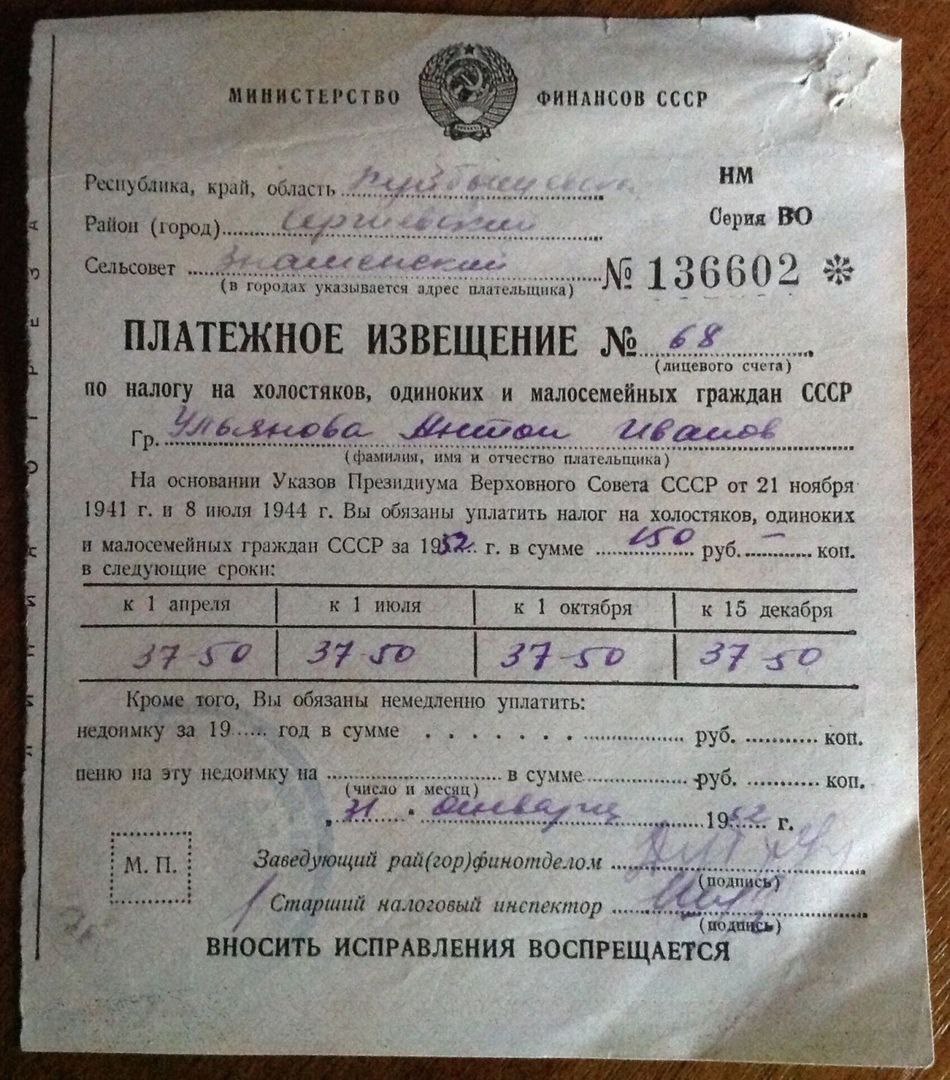 МИНИСТЕРСТВО ФИНАНСОВ СССР
НМ
Республика, край, область Куйбышевская
Серия ВО
Район (город) Сергиевский
Сельсовет Знаменский
№ 136602
(в городах указывается адрес плательщика)
ПЛАТЕЖНОЕ ИЗВЕЩЕНИЕ № 68
(лицевого счета)
по налогу на холостяков, одиноких и малосемейных граждан СССР
Гр. Ульянова Антон Иванов
(фамилия, имя и отчество плательщика)
На основании Указов Президиума Верховного Совета СССР от 21 ноября
1941 г. и 8 июля 1944 г. Вы обязаны уплатить налог на холостяков, одиноких
и малосемейных граждан СССР за 1952 г. в сумме 150 руб. — коп.
в следующие сроки:
к 1 апреля к 1 июля к 1 октября к 15 декабря
37-50 37-50 37-50 37-50
Кроме того, Вы обязаны немедленно уплатить:
недоимку за 19..... год в сумме руб. коп.
пеню на эту недоимку на в сумме руб. коп.
(число и месяц)
31 января 1952 г.
М. П.
Заведующий рай(гор)финотделом
(подпись)
Старший налоговый инспектор
(подпись)
ВНОСИТЬ ИСПРАВЛЕНИЯ ВОСПРЕЩАЕТСЯ